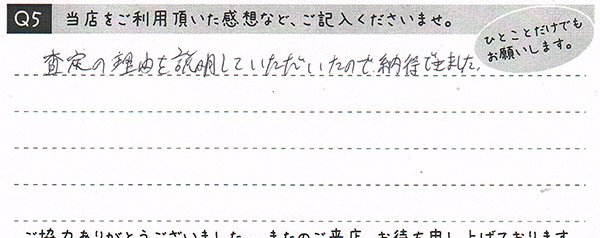 Q5 当店をご利用頂いた感想など、ご記入くださいませ。
ひとことだけでも
お願いします。
査定の理由を説明していただいたので納得できました。
ご協力ありがとうございました。またのご来店、お待ち申し上げております。